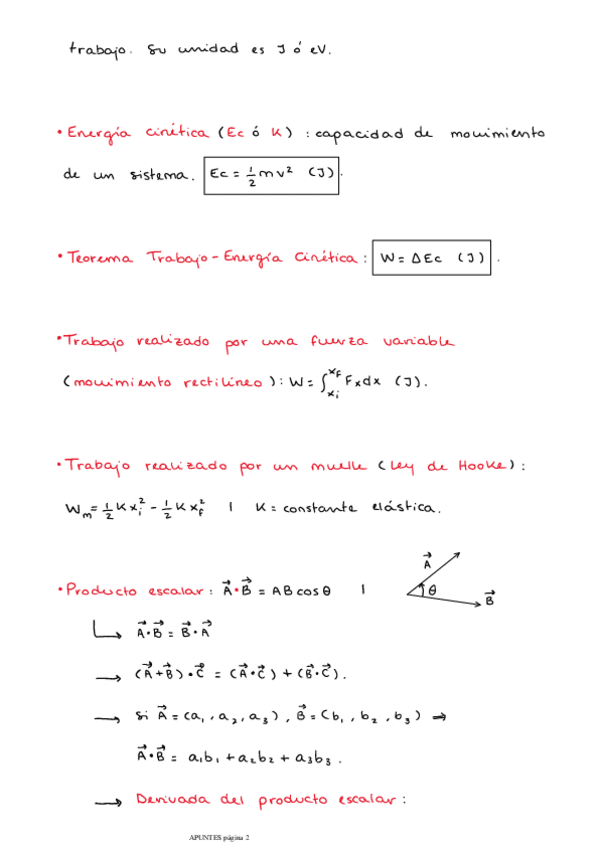 trabajo. Su unidad es J ó eV.
• Energía cinética (Ec ó K) : capacidad de movimiento
de un sistema. Ec = 1/2 mv² (J).
• Teorema Trabajo - Energía Cinética : W = ΔEc (J) .
• Trabajo realizado por una fuerza variable
(movimiento rectilíneo) : W = ∫_{xi}^{xF} Fxdx (J).
• Trabajo realizado por un muelle (Ley de Hooke) :
W_m = 1/2 K x_i² - 1/2 K x_f² | K = constante elástica.
• Producto escalar : A⃗·B⃗ = AB cos θ | A⃗ θ B⃗
↳ A⃗·B⃗ = B⃗·A⃗
→ (A⃗+B⃗)·C⃗ = (A⃗·C⃗) + (B⃗·C⃗).
→ si A⃗ = (a₁, a₂, a₃), B⃗ = (b₁, b₂, b₃) ⇒
A⃗·B⃗ = a₁b₁ + a₂b₂ + a₃b₃ .
→ Derivada del producto escalar :
APUNTES página 2